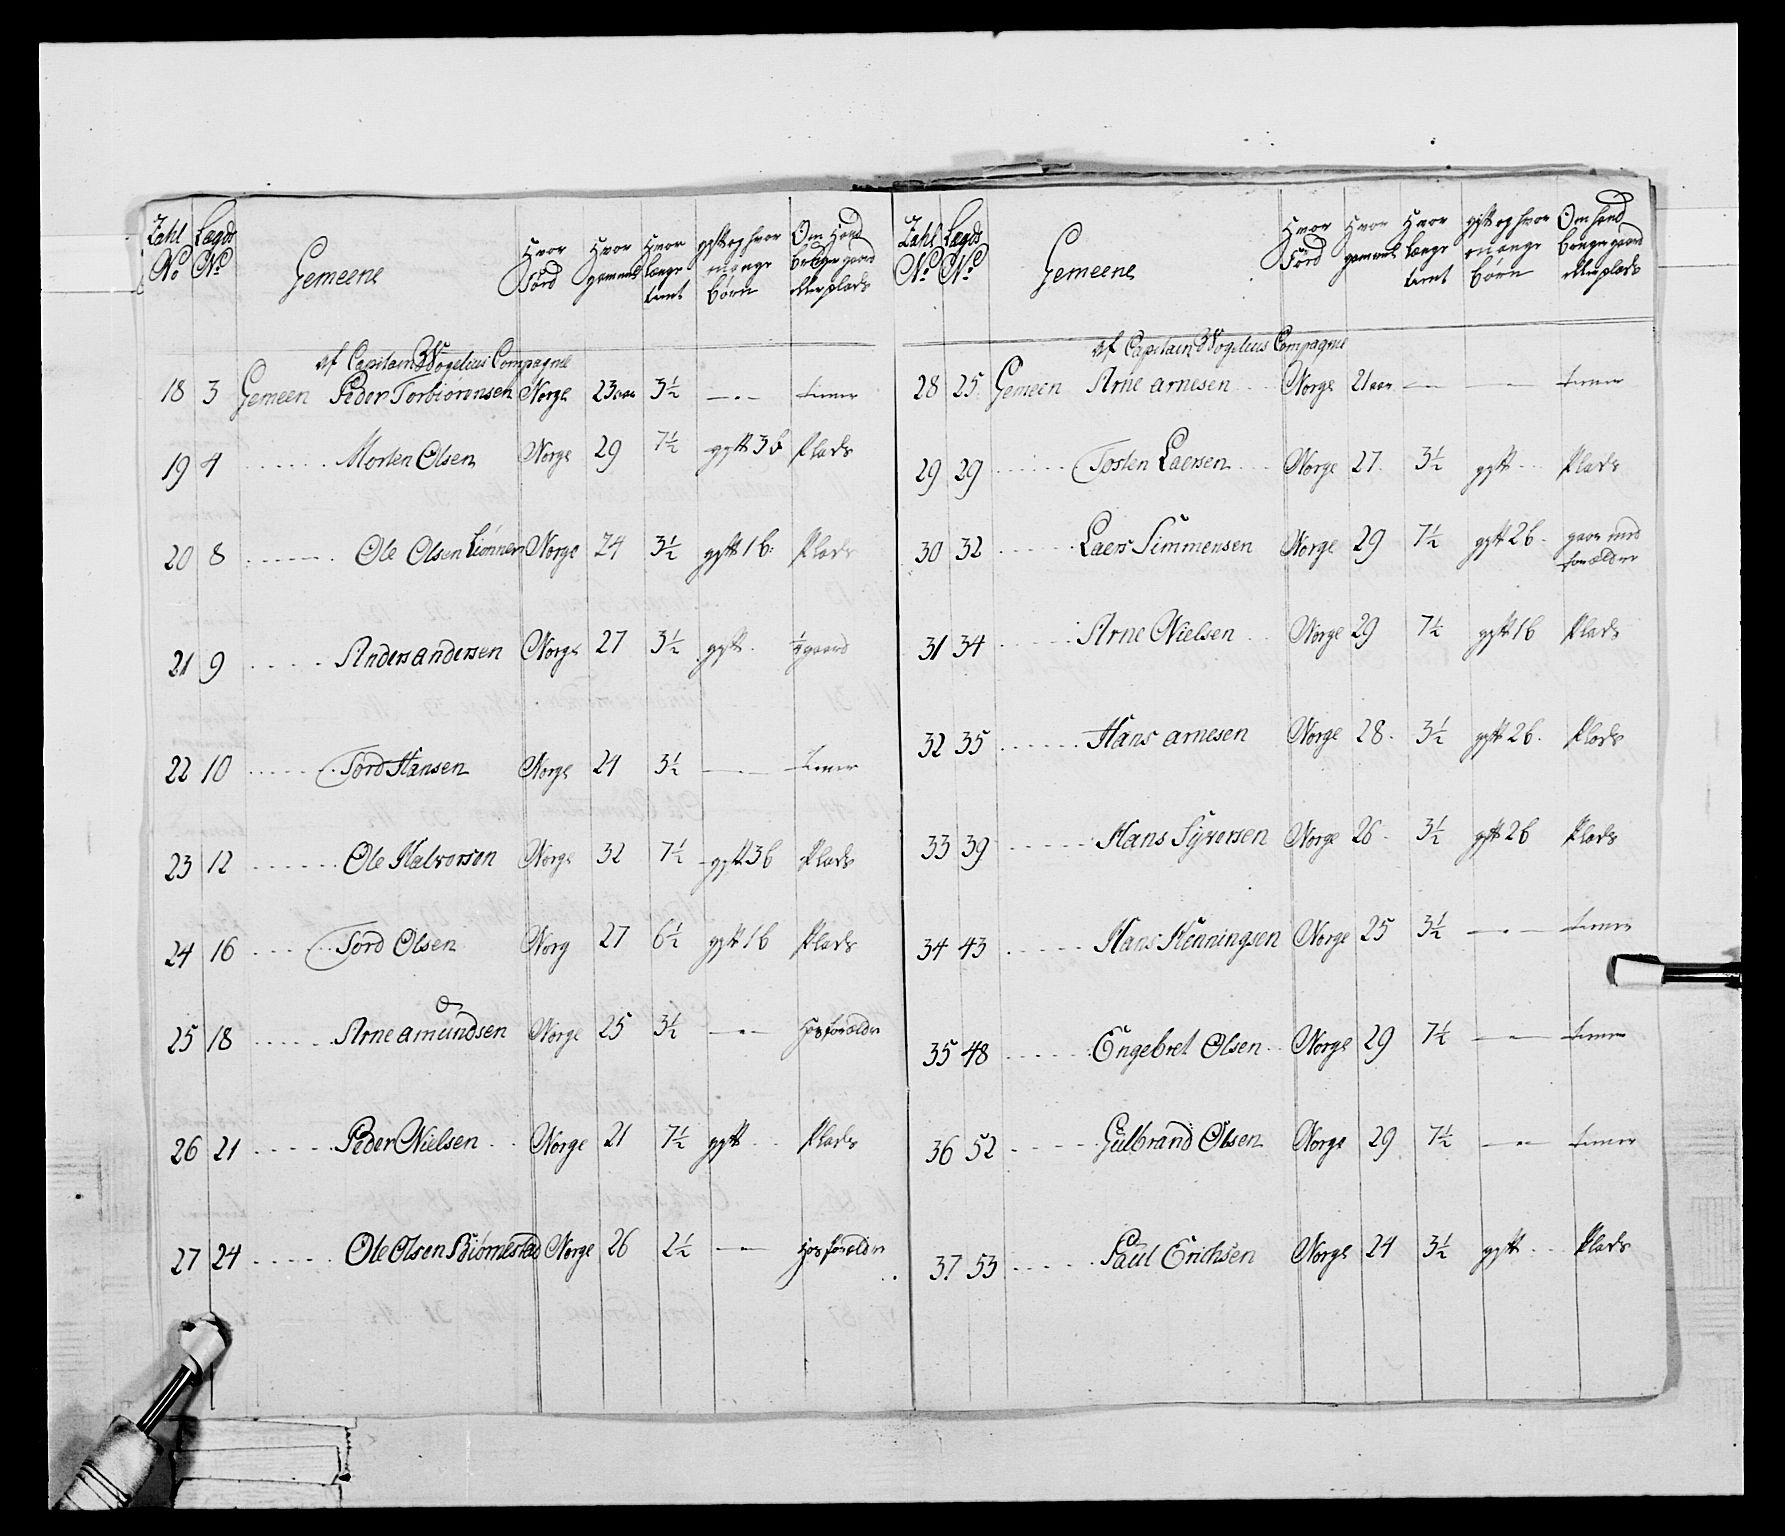 Zahl No | Lægds No | Gemeene | Hvor Förd | Hvor gammel | Hvor længe tient | gift og hvor mange börn | Om Hand bruger gaard eller plads
af Capitain Wogelius Compagnie
18 3 Gemeen Peder Torbiörensen Norge 23 aar 3½ — tiener
19 4 Morten Olsen Norge 29 7½ gift 3 b Plads
20 8 Ole Olsen Norge 24 3½ gift 1 b: Plads
21 9 Anders andersen Norge 27 3½ gift ½ gaard
22 10 Tord Hansen Norge 24 3½ — tiener
23 12 Ole Halvorsen Norge 32 7½ gift 3 b Plads
24 16 Tord Olsen Norg 27 6½ gift 1 b Plads
25 18 Arne amundsen Norge 25 3½ — Hos forældre
26 21 Peder Nielsen Norge 21 7½ gift Plads
27 24 Ole Olsen Biörnestad Norge 26 2½ — Hos forældre
Zahl No | Lægds No | Gemeene | Hvor Förd | Hvor gammel | Hvor længe tient | gift og hvor mange börn | Om Hand bruger gaard eller plads
af Capitain Wogelius Compagnie
28 25 Gemeen Arne arnesen Norge 21 aar — — tiener
29 29 Tosten Laersen Norge 27 3½ gift Plads
30 32 Laers Simmensen Norge 29 7½ gift 2 b. gaar med
forældre
31 34 Arne Nielsen Norge 29 7½ gift 1 b Plads
32 35 Hans arnesen Norge 28 3½ gift 2 b. Plads
33 39 Hans Syversen Norge 26 3½ gift 2 b Plads
34 43 Hans Henningsen Norge 25 3½ — tiener
35 48 Engebret Olsen Norge 29 7½ — tiener
36 52 Gulbrand Olsen Norge 29 7½ — tiener
37 53 Paul Erichsen Norge 24 3½ gift Plads